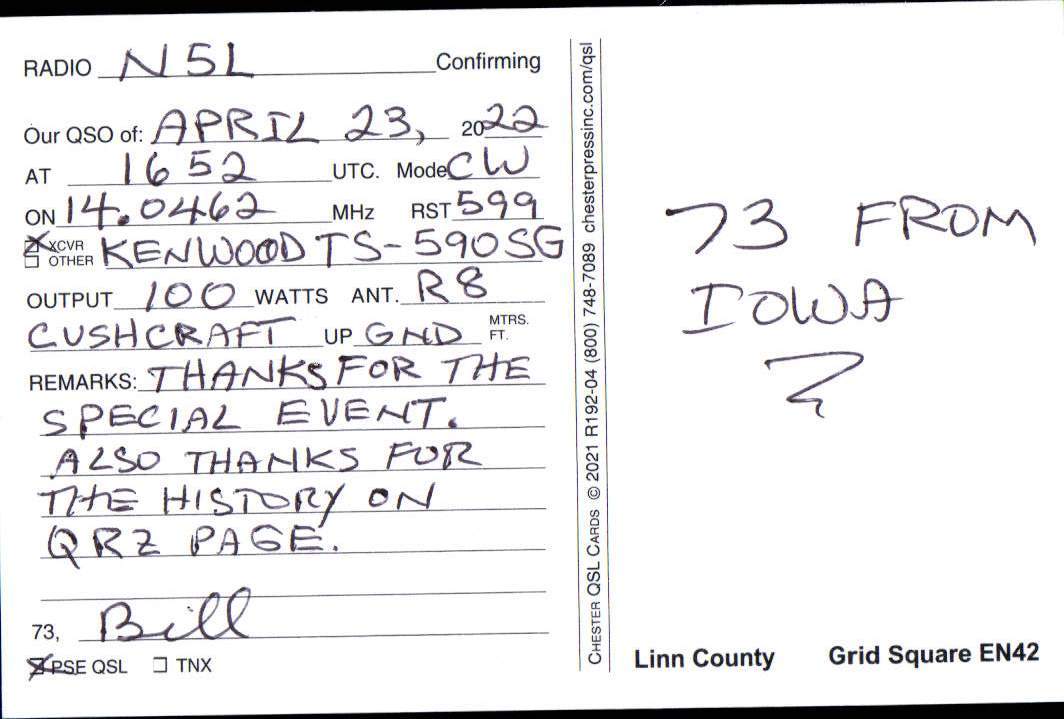 RADIO N5L Confirming
Our QSO of: APRIL 23, 2022
AT 1652 UTC. Mode CW
ON 14.0462 MHz RST 599
XCVR
OTHER KENWOOD TS-590SG
OUTPUT 100 WATTS ANT. R8
CUSHCRAFT UP GND MTRS.
FT.
REMARKS: THANKS FOR THE
SPECIAL EVENT.
ALSO THANKS FOR
THE HISTORY ON
QRZ PAGE.
73, Bill
PSE QSL TNX
CHESTER QSL CARDS © 2021 R192-04 (800) 748-7089 chesterpressinc.com/qsl
73 FROM
IOWA
Linn County Grid Square EN42